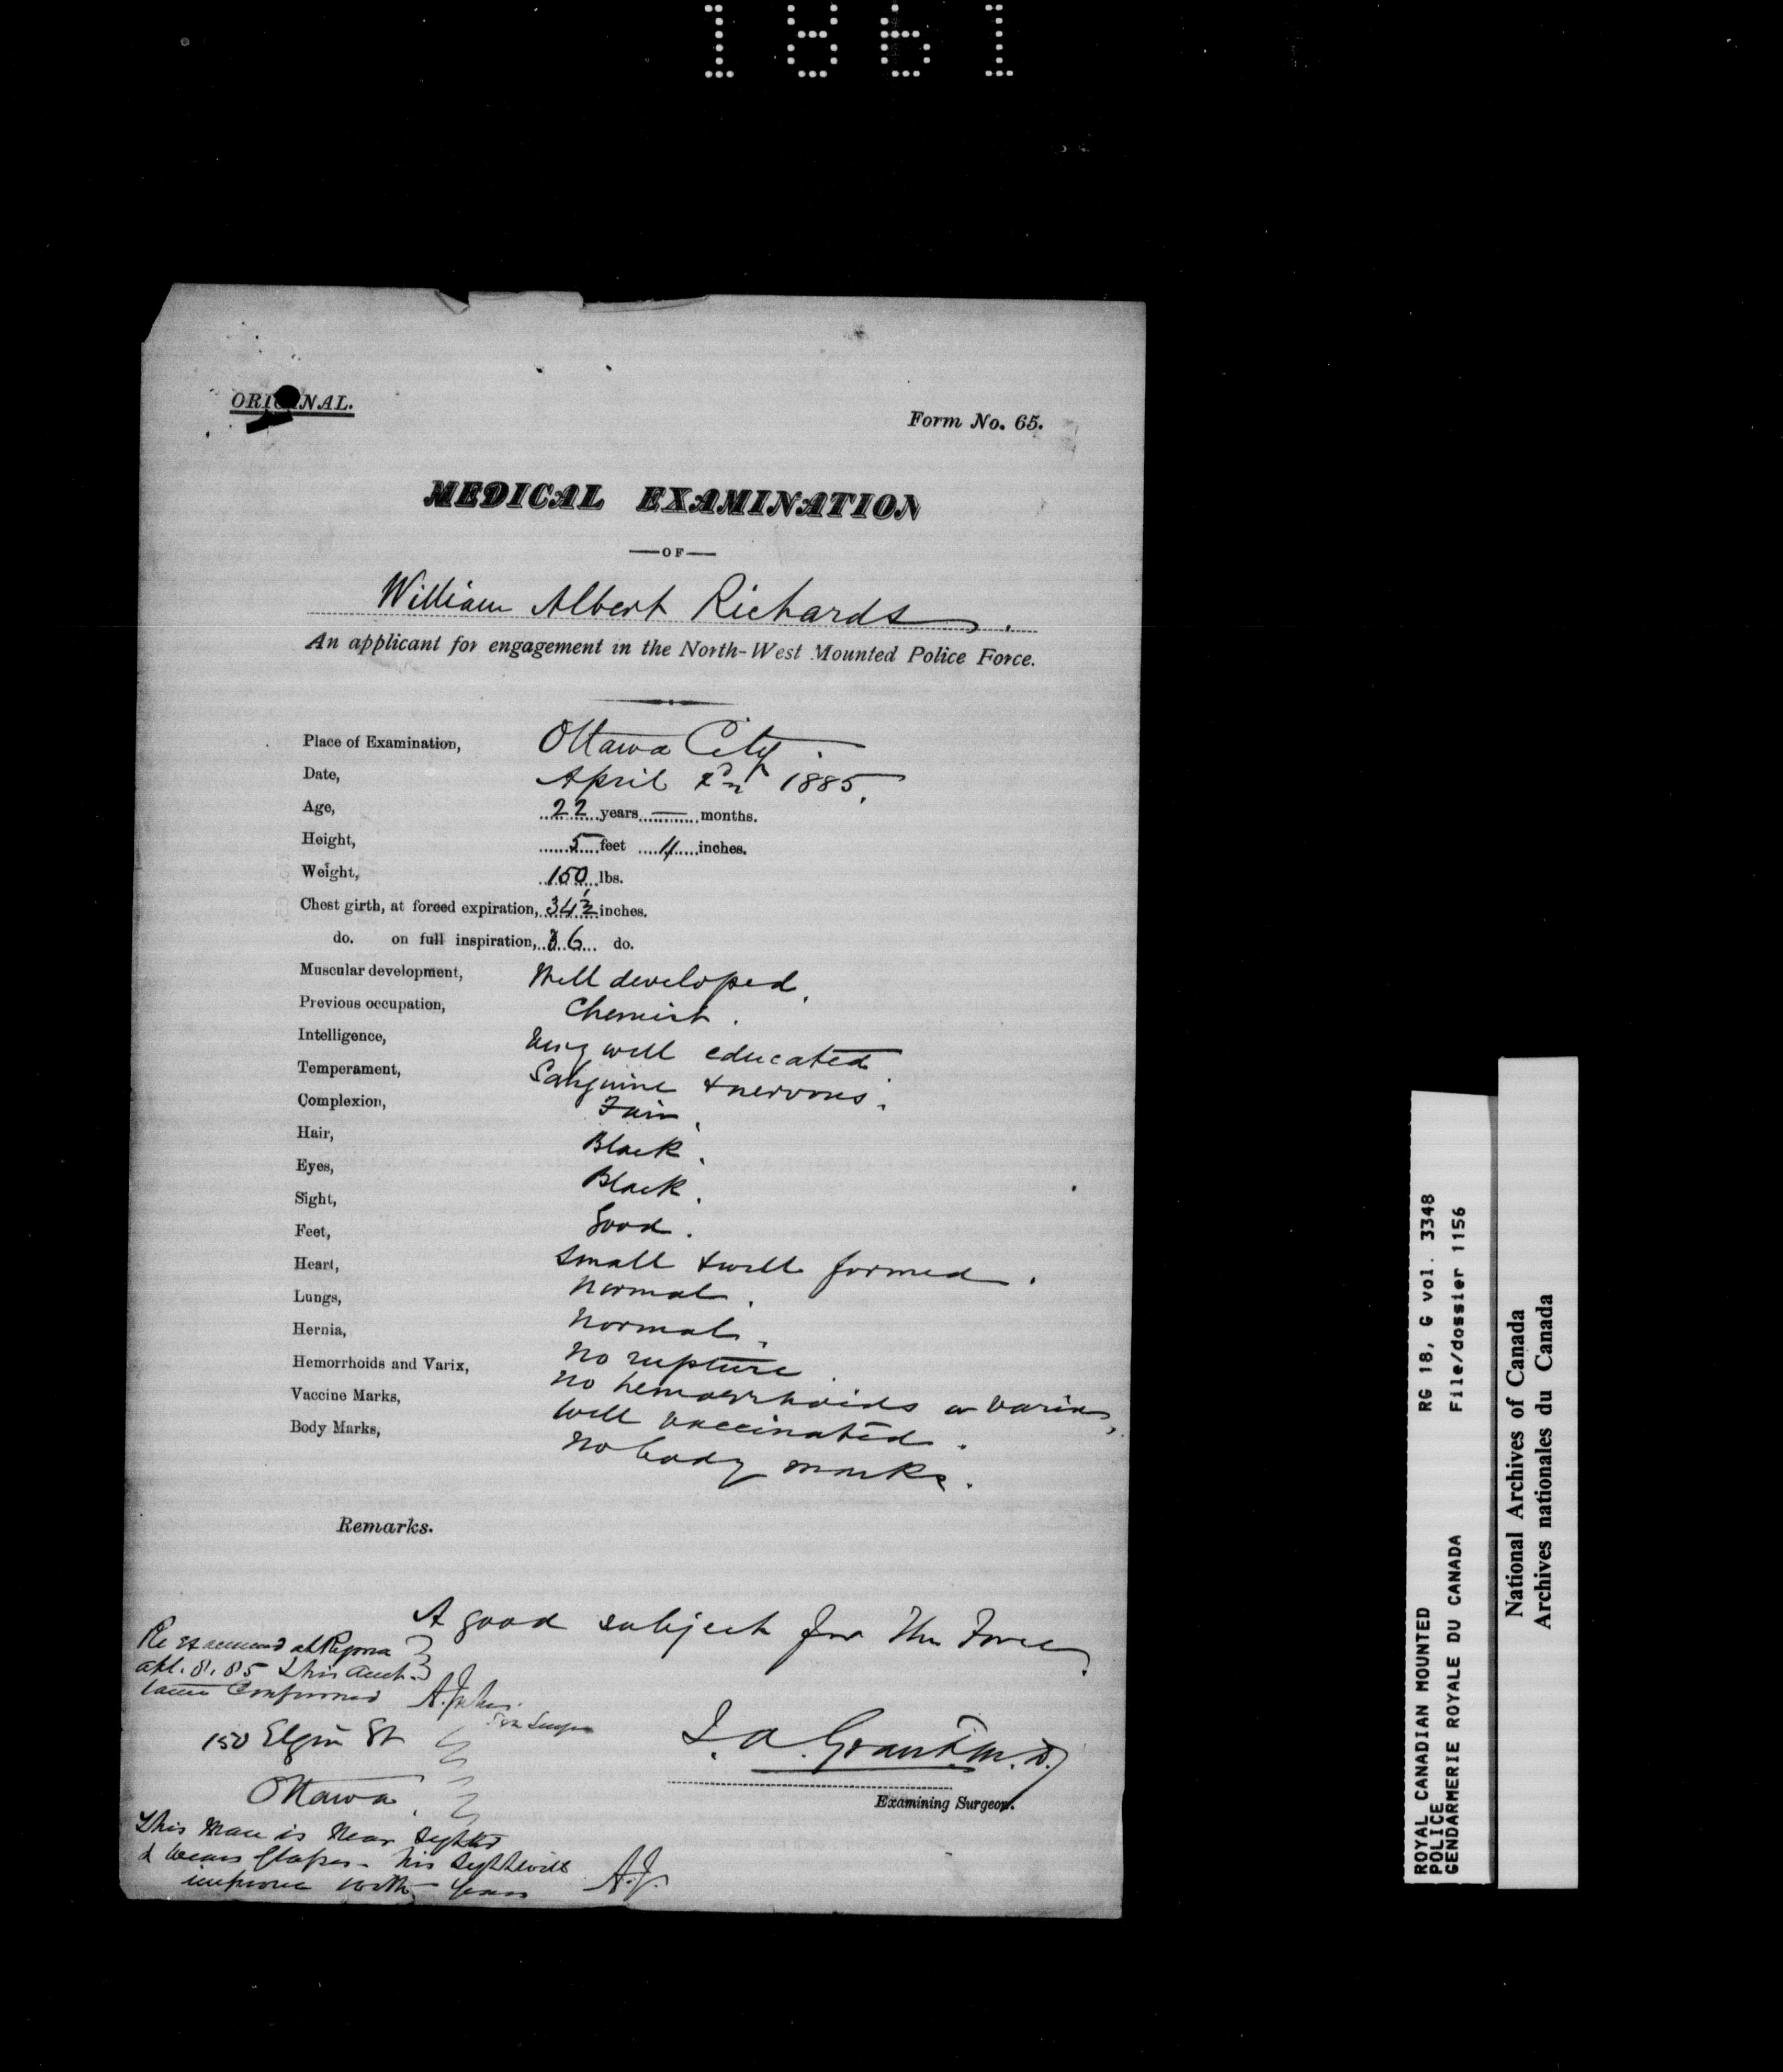 1861
ORIGINAL.
Form No. 65.
MEDICAL EXAMINATION
—OF—
William Albert Richards.
An applicant for engagement in the North-West Mounted Police Force.
Place of Examination, Ottawa City.
Date, April 2nd 1885.
Age, 22 years — months.
Height, 5 feet 11 inches.
Weight, 150 lbs.
Chest girth, at forced expiration, 34½ inches.
do. on full inspiration, 36 do.
Muscular development, Well developed.
Previous occupation, Chemist.
Intelligence, Very well educated
Temperament, Sanguine & nervous.
Complexion, Fair.
Hair, Black.
Eyes, Black.
Sight, Good.
Feet, Small & well formed.
Heart, Normal.
Lungs, Normal.
Hernia, No rupture
Hemorrhoids and Varix, No hemorrhoids or varix,
Vaccine Marks, Well vaccinated.
Body Marks, No body marks.
Remarks.
A good subject for The Force.
Re examined at Regina
apl. 8. 85 & his
Confirmed A. Jukes
Sen Surgeon
150 Elgin St
Ottawa
J. A. Grant M.D.
Examining Surgeon.
This man is near sighted
& wears glasses - his sight will
improve with years A.J.
ROYAL CANADIAN MOUNTED RG 18, G vol. 3348
POLICE File/dossier 1156
GENDARMERIE ROYALE DU CANADA
National Archives of Canada
Archives nationales du Canada